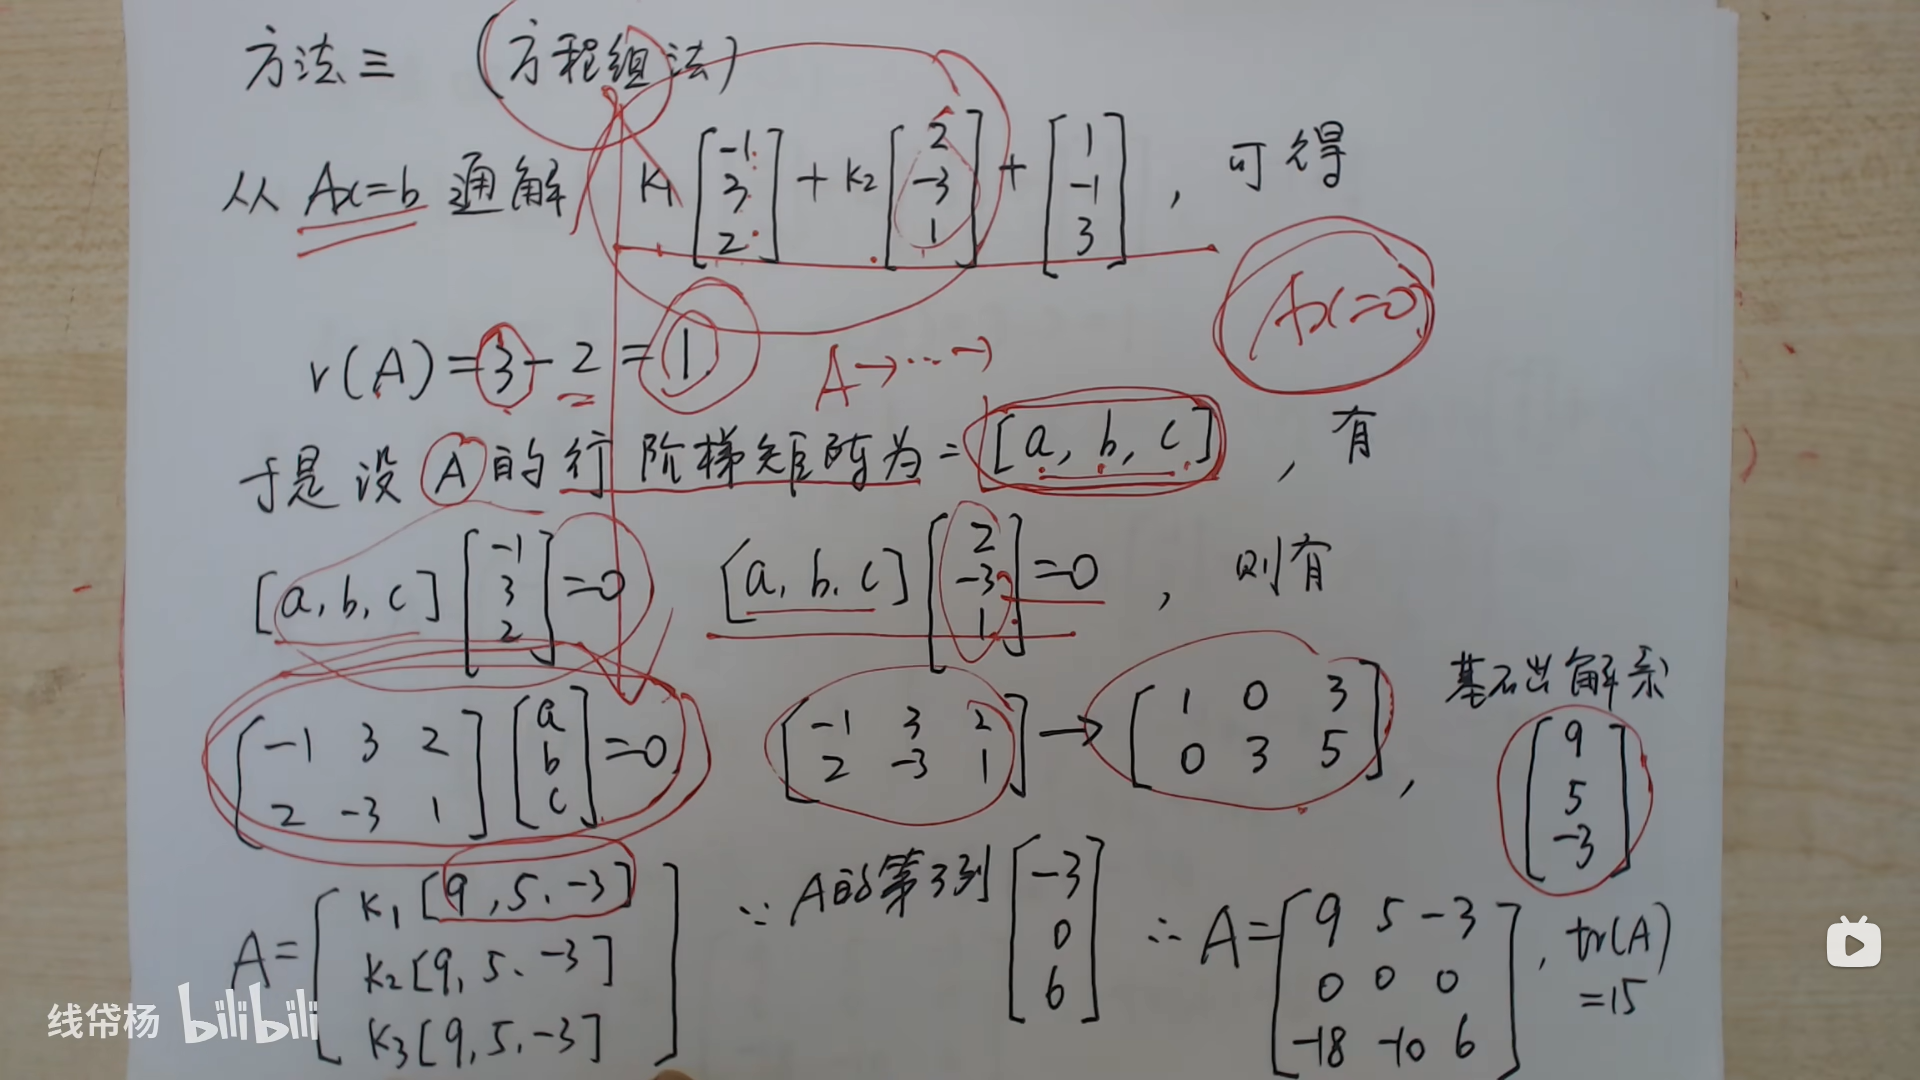 方法三 (方程组法)
从 Ax=b 通解 K₁ [-1 3 2] + K₂ [2 -3 1] + [1 -1 3], 可得
r(A)=3-2=1 A→…→ Ax=0
于是设 A 的行阶梯矩阵为=[a, b, c], 有
[a, b, c] [-1 3 2] =0 [a, b, c] [2 -3 1] =0, 则有
[-1 3 2
2 -3 1] [a b c] =0
[-1 3 2
2 -3 1] → [1 0 3
0 3 5],
基础解系 [9 5 -3]
A= [K₁[9, 5, -3]
K₂[9, 5, -3]
K₃[9, 5, -3]]
∵ A的第3列 [-3 0 6]
∴ A= [9 5 -3
0 0 0
-18 -10 6], tr(A)
=15
线帒杨 bilibili